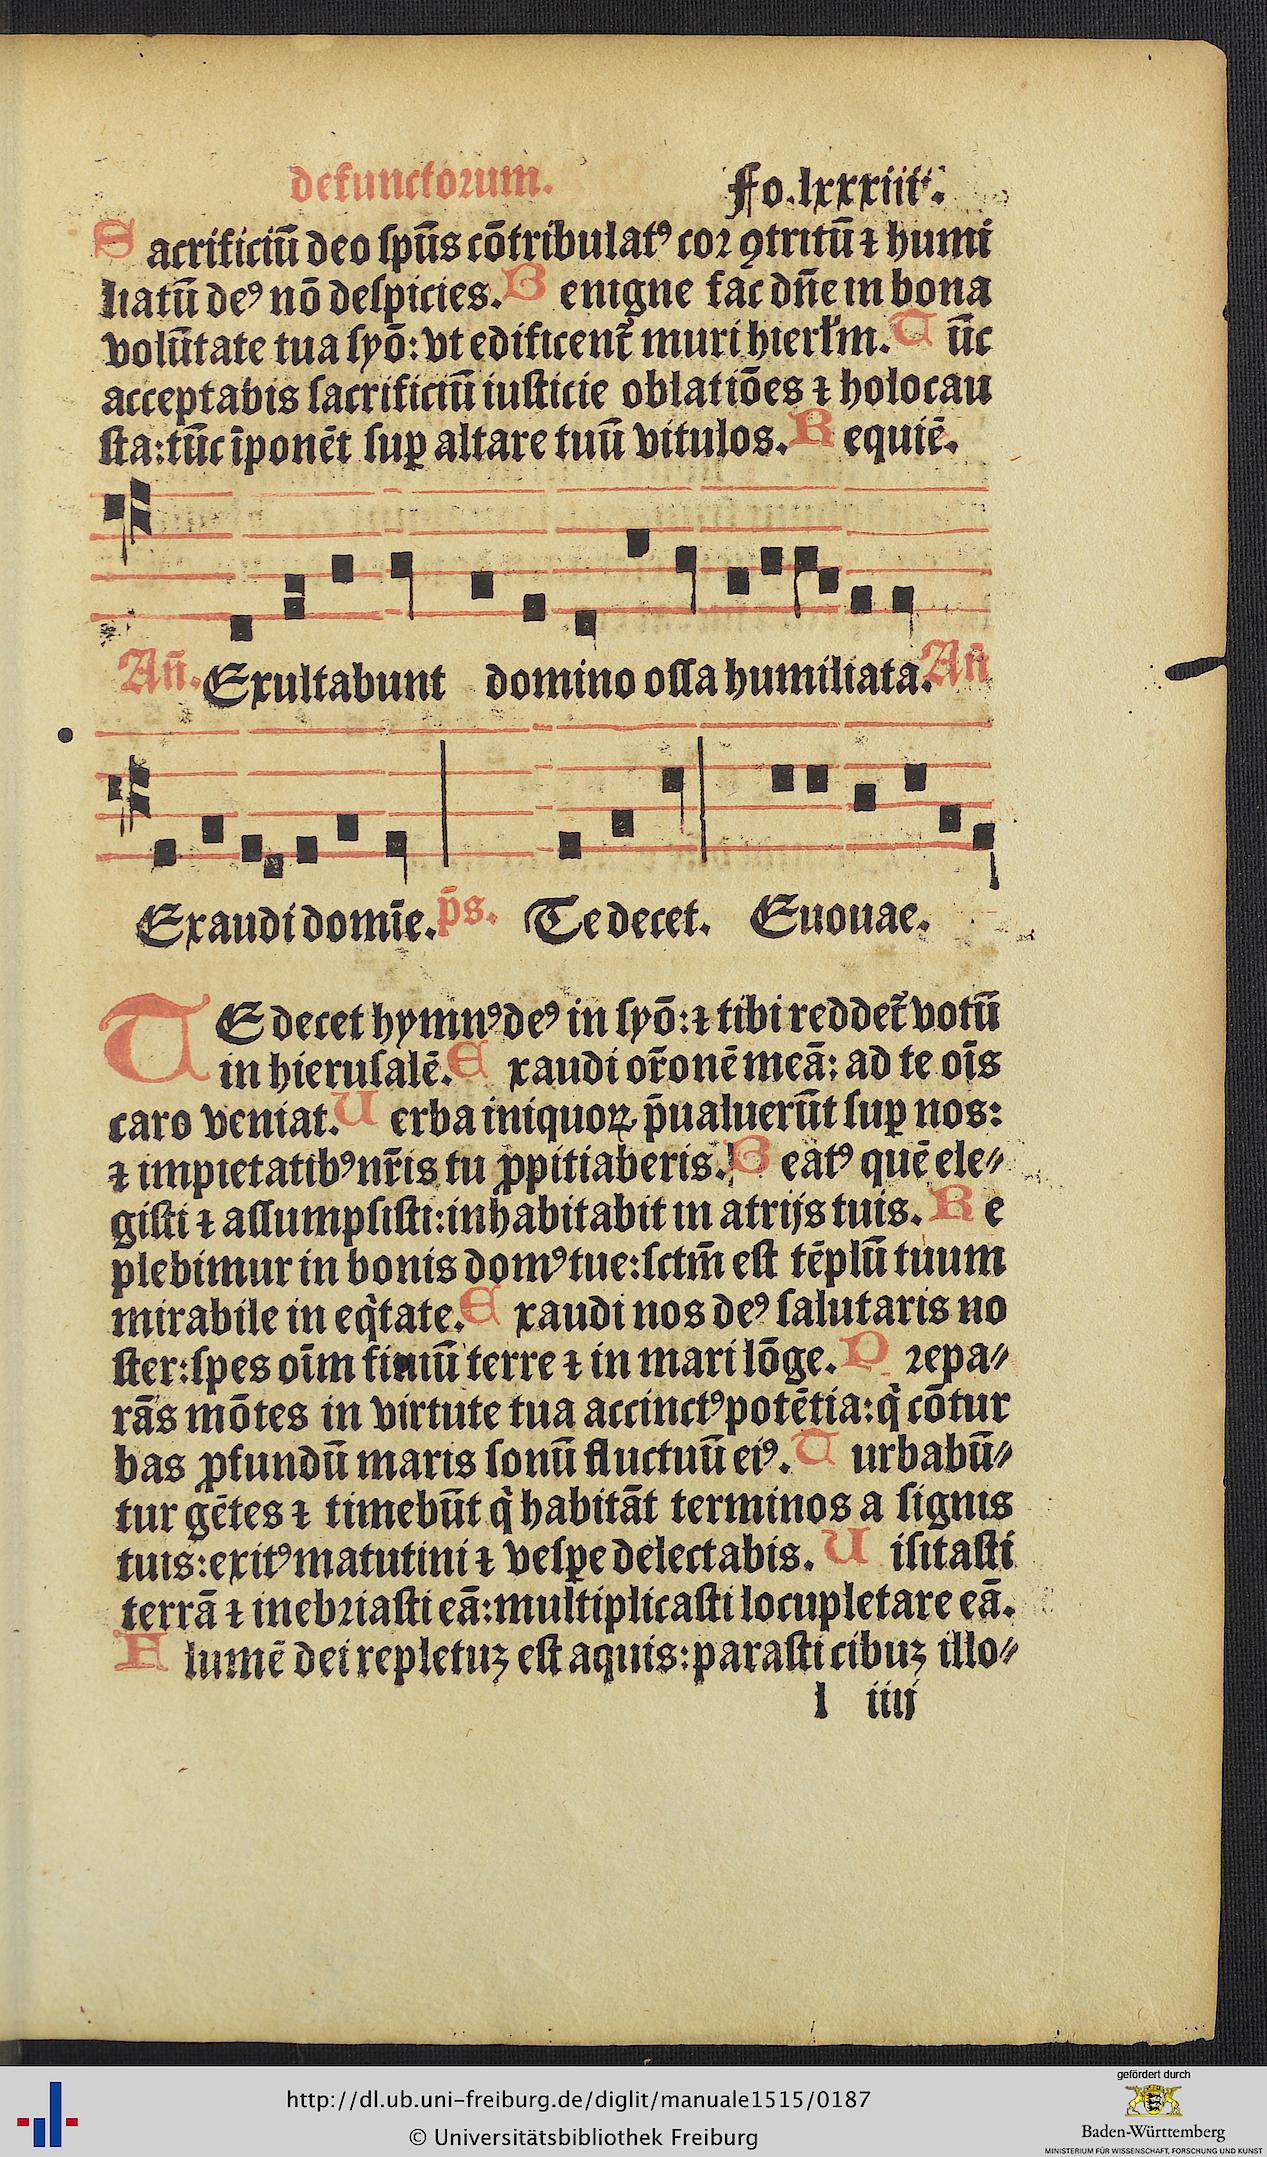 defunctorum. Fo.lxxxiiiᵗ.
Sacrificiū deo spūs cōtribulatꝰ cor ꝯtritū ⁊ humi
liatū deꝰ nō despicies. Benigne fac dn̄e in bona
volūtate tua syō: vt edificent᷑ muri hierl̄m. Tūc
acceptabis sacrificiū iusticie oblatiōes ⁊ holocau
sta: tūc īponēt sup̱ altare tuū vitulos. Requiē.
An̄. Exultabunt domino ossa humiliata. An̄
Exaudi domīe. p̄s. Te decet. Euouae.
TE decet hymnꝰ deꝰ in syō: ⁊ tibi reddet᷑ votū
in hierusalē. Exaudi or̄onē meā: ad te oīs
caro veniat. Uerba iniquoꝝ p̄ualuerūt sup̱ nos:
⁊ impietatibꝰ nr̄is tu ꝓpitiaberis. Beatꝰ quē ele⸗
gisti ⁊ assumpsisti: inhabitabit in atrijs tuis. Re
plebimur in bonis domꝰ tue: sctm̄ est tēplū tuum
mirabile in eq̇tate. Exaudi nos deꝰ salutaris no
ster: spes oīm finiū terre ⁊ in mari lōge. Prepa⸗
rās mōtes in virtute tua accinctꝰ potētia: q̇ cōtur
bas ꝓfundū maris sonū fluctuū eiꝰ. Turbabū⸗
tur gētes ⁊ timebūt q̇ habitāt terminos a signis
tuis: exitꝰ matutini ⁊ vesp̱e delectabis. Uisitasti
terrā ⁊ inebriasti eā: multiplicasti locupletare eā.
Flumē dei repletuꝫ est aquis: parasti cibuꝫ illo⸗
l iiij
http://dl.ub.uni-freiburg.de/diglit/manuale1515/0187
© Universitätsbibliothek Freiburg
gefördert durch
Baden-Württemberg
MINISTERIUM FÜR WISSENSCHAFT, FORSCHUNG UND KUNST